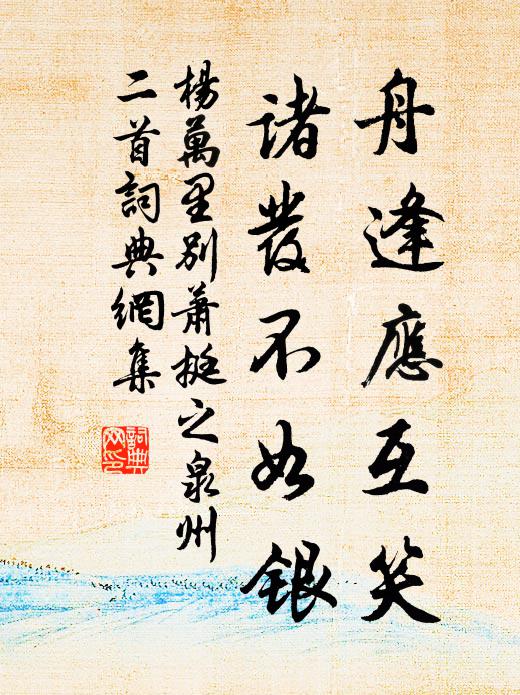 舟逢應互笑
諸發不如銀
楊萬里別蕭挺之泉州
二首詞典網集
詞典
网印